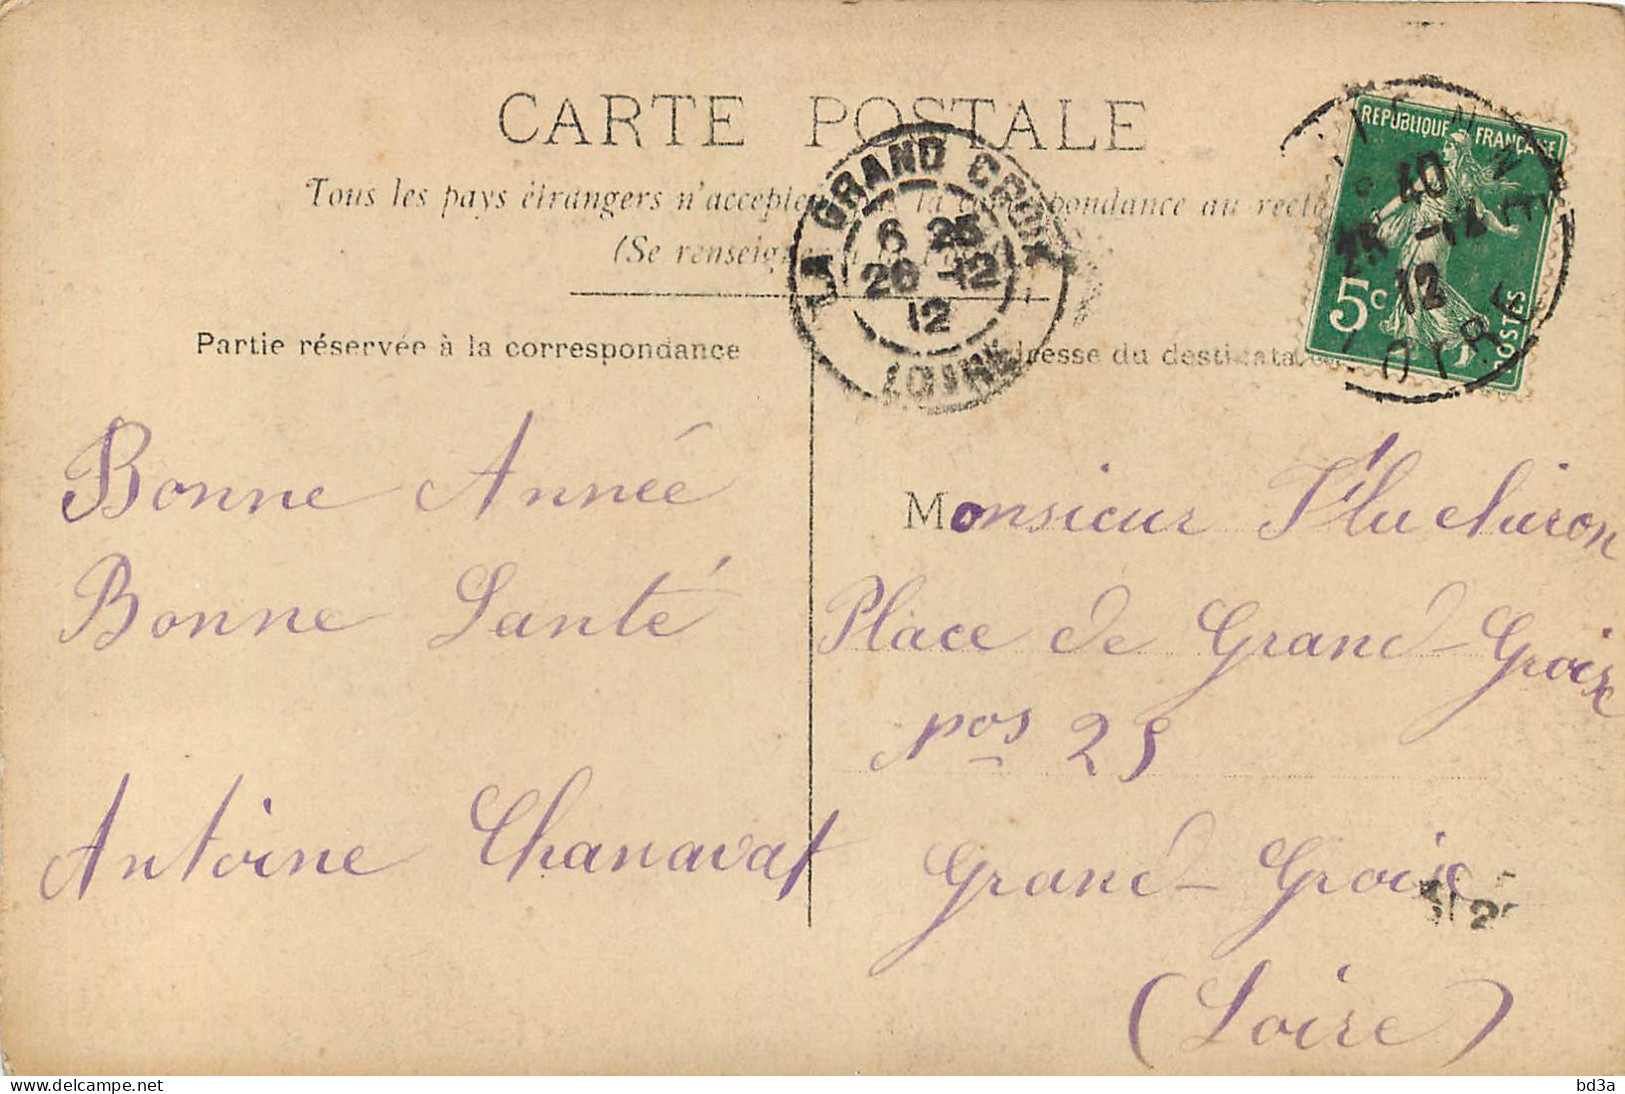 CARTE POSTALE
Tous les pays étrangers n'accepte la correspondance au recto
(Se renseigner à la
Partie réservée à la correspondance
Adresse du destinata
LA GRAND CROIX
6 25
26 -12
12
LOIRE
REPUBLIQUE FRANÇAISE
5c
POSTES
40
25 -12
12
LOIRE
Bonne Année
Bonne Santé
Antoine Chanavat
Monsieur Fluchiron
Place de Grand-Groix
nos 25
Grand-Groix
(Loire)
delcampe.net
bd3a